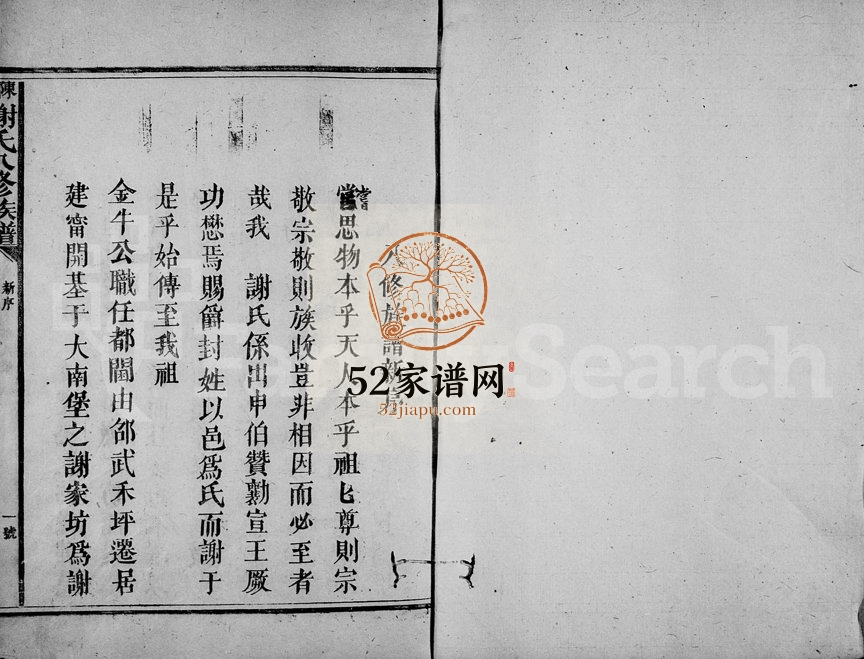 修族譜新序
嘗思物本乎天人本乎祖匕尊則宗
敬宗敬則族收豈非相因而必至者
哉我 謝氏係出申伯贊勷宣王厥
功懋焉賜爵封姓以邑爲氏而謝于
是乎始傳至我祖
金牛公職任都閫由邵武禾坪遷居
建甯開基于大南堡之謝家坊爲謝
陳
謝氏八修族譜
新序
一號
52家谱网
52jiapu.com
Search